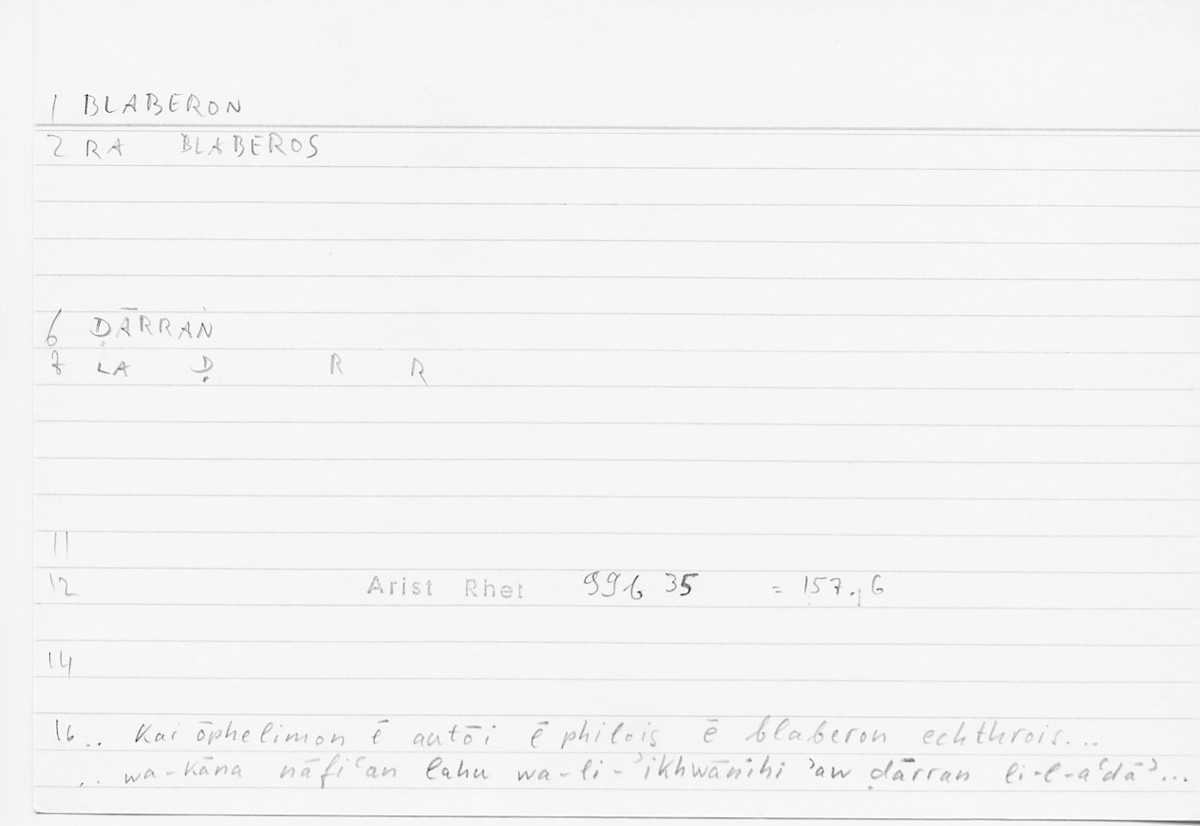 1 BLABERON
2 RA BLABEROS
6 ḌĀRRAN
7 LA Ḍ R R
11
12 Arist Rhet 99b 35 = 157., 6
14
16.. kai ōphelimon ē autōi ē philois ē blaberon echthrois...
.. wa-kāna nāfiʿan lahu wa-li-ʾikhwānihi ʾaw ḍārran li-l-aʿdāʾ...